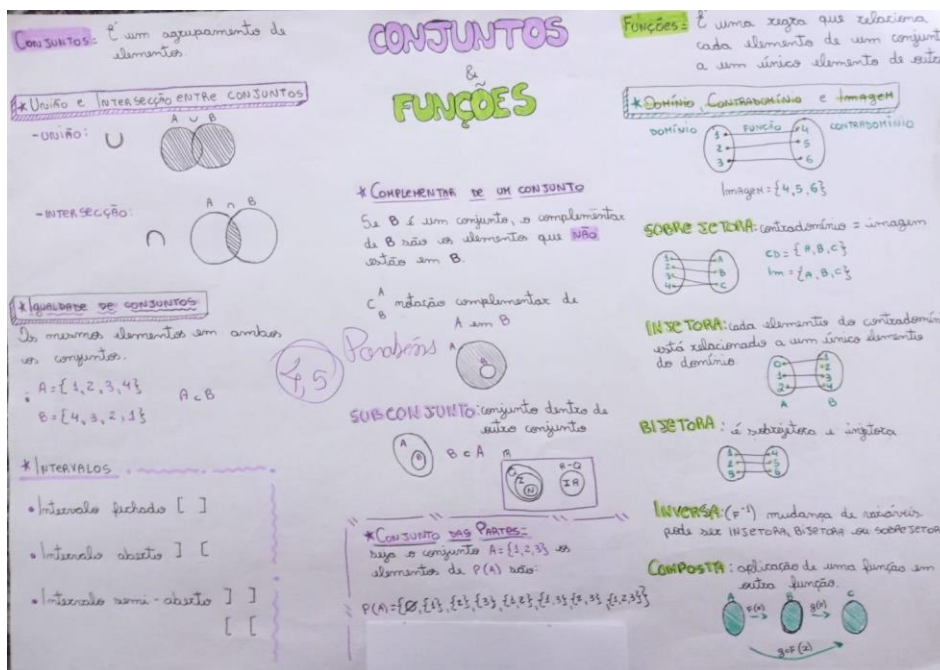 CONJUNTOS: É um agrupamento de
elementos.
* UNIÃO E INTERSECÇÃO ENTRE CONJUNTOS
- UNIÃO: ∪
A ∪ B
- INTERSECÇÃO:
∩
A ∩ B
* IGUALDADE DE CONJUNTOS
Os mesmos elementos em ambos
os conjuntos.
A={1,2,3,4}
B={4,3,2,1}
* INTERVALOS
• Intervalo fechado [ ]
• Intervalo aberto ] [
• Intervalo semi-aberto ] ]
[ [
CONJUNTOS
&
FUNÇÕES
* COMPLEMENTAR DE UM CONJUNTO
Se B é um conjunto, o complementar
de B são os elementos que NÃO
estão em B.
C A B notação complementar de
A em B
A
B
Parabéns
SUBCONJUNTO: conjunto dentro de
outro conjunto
A B
B ⊂ A
R
Q Z N
R-Q
IR
* CONJUNTO DAS PARTES:
seja o conjunto A={1,2,3} os
elementos de P(A) são:
P(A)={Ø,{1},{2},{3},{1,2},{1,3},{2,3},{1,2,3}}
Funções: É uma regra que relaciona
cada elemento de um conjunt
a um único elemento de outr
* DOMÍNIO, CONTRADOMÍNIO e IMAGEM
DOMÍNIO FUNÇÃO CONTRADOMÍNIO
1 4
2 5
3 6
Imagem={4,5,6}
SOBREJETORA: contradomínio = imagem
1 A
2 B
3 C
4
CD={A,B,C}
Im={A,B,C}
INJETORA: cada elemento do contradomín
está relacionado a um único elemento
do domínio
0 1
1 2
2 3
4
A B
BIJETORA: é sobrejetora e injetora
1 4
2 5
3 6
INVERSA: (F⁻¹) mudança de variáveis
pode ser INJETORA, BIJETORA ou SOBREJETOR
COMPOSTA: aplicação de uma função em
outra função.
A B C
F(x) g(x)